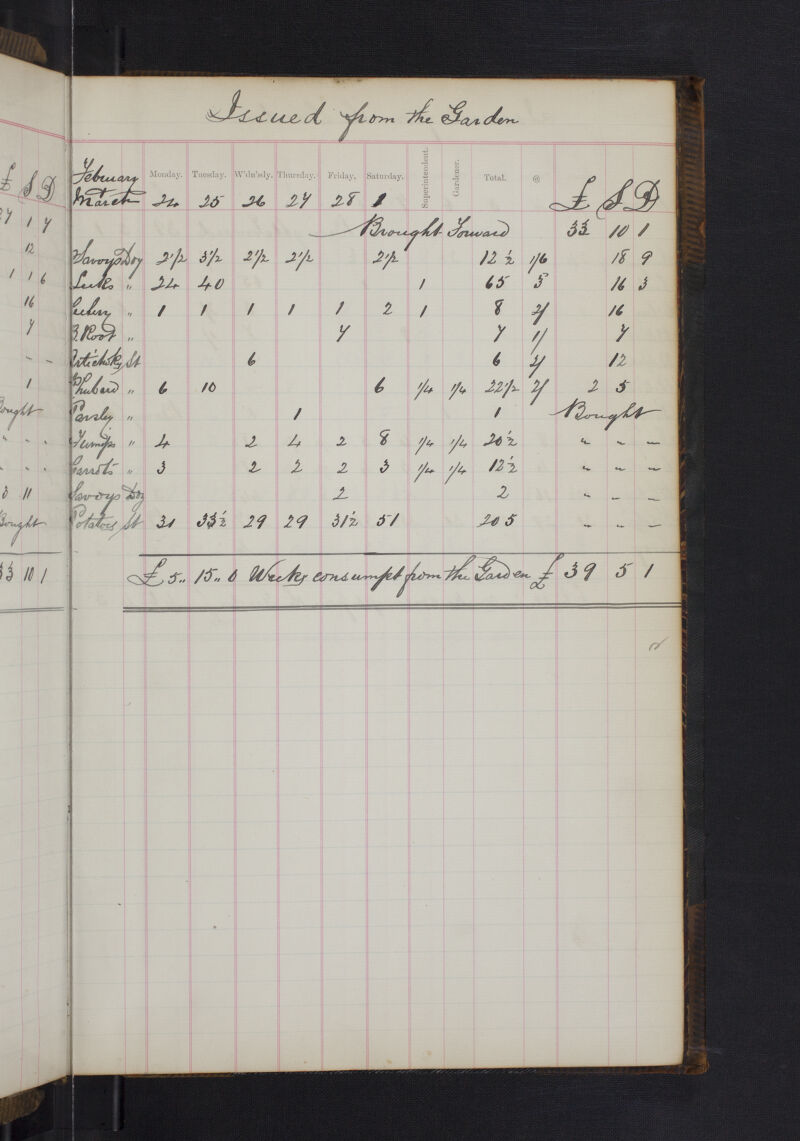 Issued from the Garden
£ S D
February Monday. Tuesday. W'dn'sdy. Thursday. Friday. Saturday. Superintendent. Gardener. Total. @
March 24 25 26 27 28 1 £ S D
Brought Forward 33 10 1
Savoys Doz 2 1/2 3 1/2 2 1/2 2 1/2 2 1/2 12 1/2 1/6 18 9
Leeks " 24 40 1 65 3 16 3
Celery " 1 1 1 1 1 2 1 8 2/ 16
B Root " 7 7 1/ 7
Artichoks St 6 6 2/ 12
Rhubard " 6 10 6 1/4 1/4 22 1/2 2/ 2 5
Parsley " 1 1 Bought
Turnips " 4 2 4 2 8 1/4 1/4 20 1/2 " – –
Carrots " 3 2 2 2 3 1/4 1/4 12 1/2 " – –
Savoys Doz 2 2 " – –
Potatoes St 31 33 1/2 29 29 31 1/2 51 205 " – –
£5 " 15 " 0 Weeks consumpt from the Garden £ 39 5 1
1 7
12
1 1 6
16
7
– –
1
Bought
" " "
" " "
3 11
Bought
33 10 1